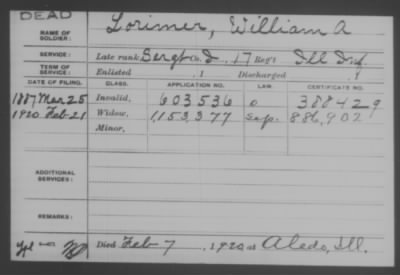 DEAD
NAME OF SOLDIER: Lorimer, William A
SERVICE: Late rank, Sergt Co. D, 17 Reg't Ill Inf.
TERM OF SERVICE: Enlisted , 1 Discharged , 1
DATE OF FILING. CLASS. APPLICATION NO. LAW. CERTIFICATE NO.
1887 Mar 25 Invalid, 603536 0 388429
1920 Feb 21 Widow, 1,153,377 Sep. 886,902
Minor,
ADDITIONAL SERVICES:
REMARKS:
Died Feb 7, 1920 at Aledo, Ill.